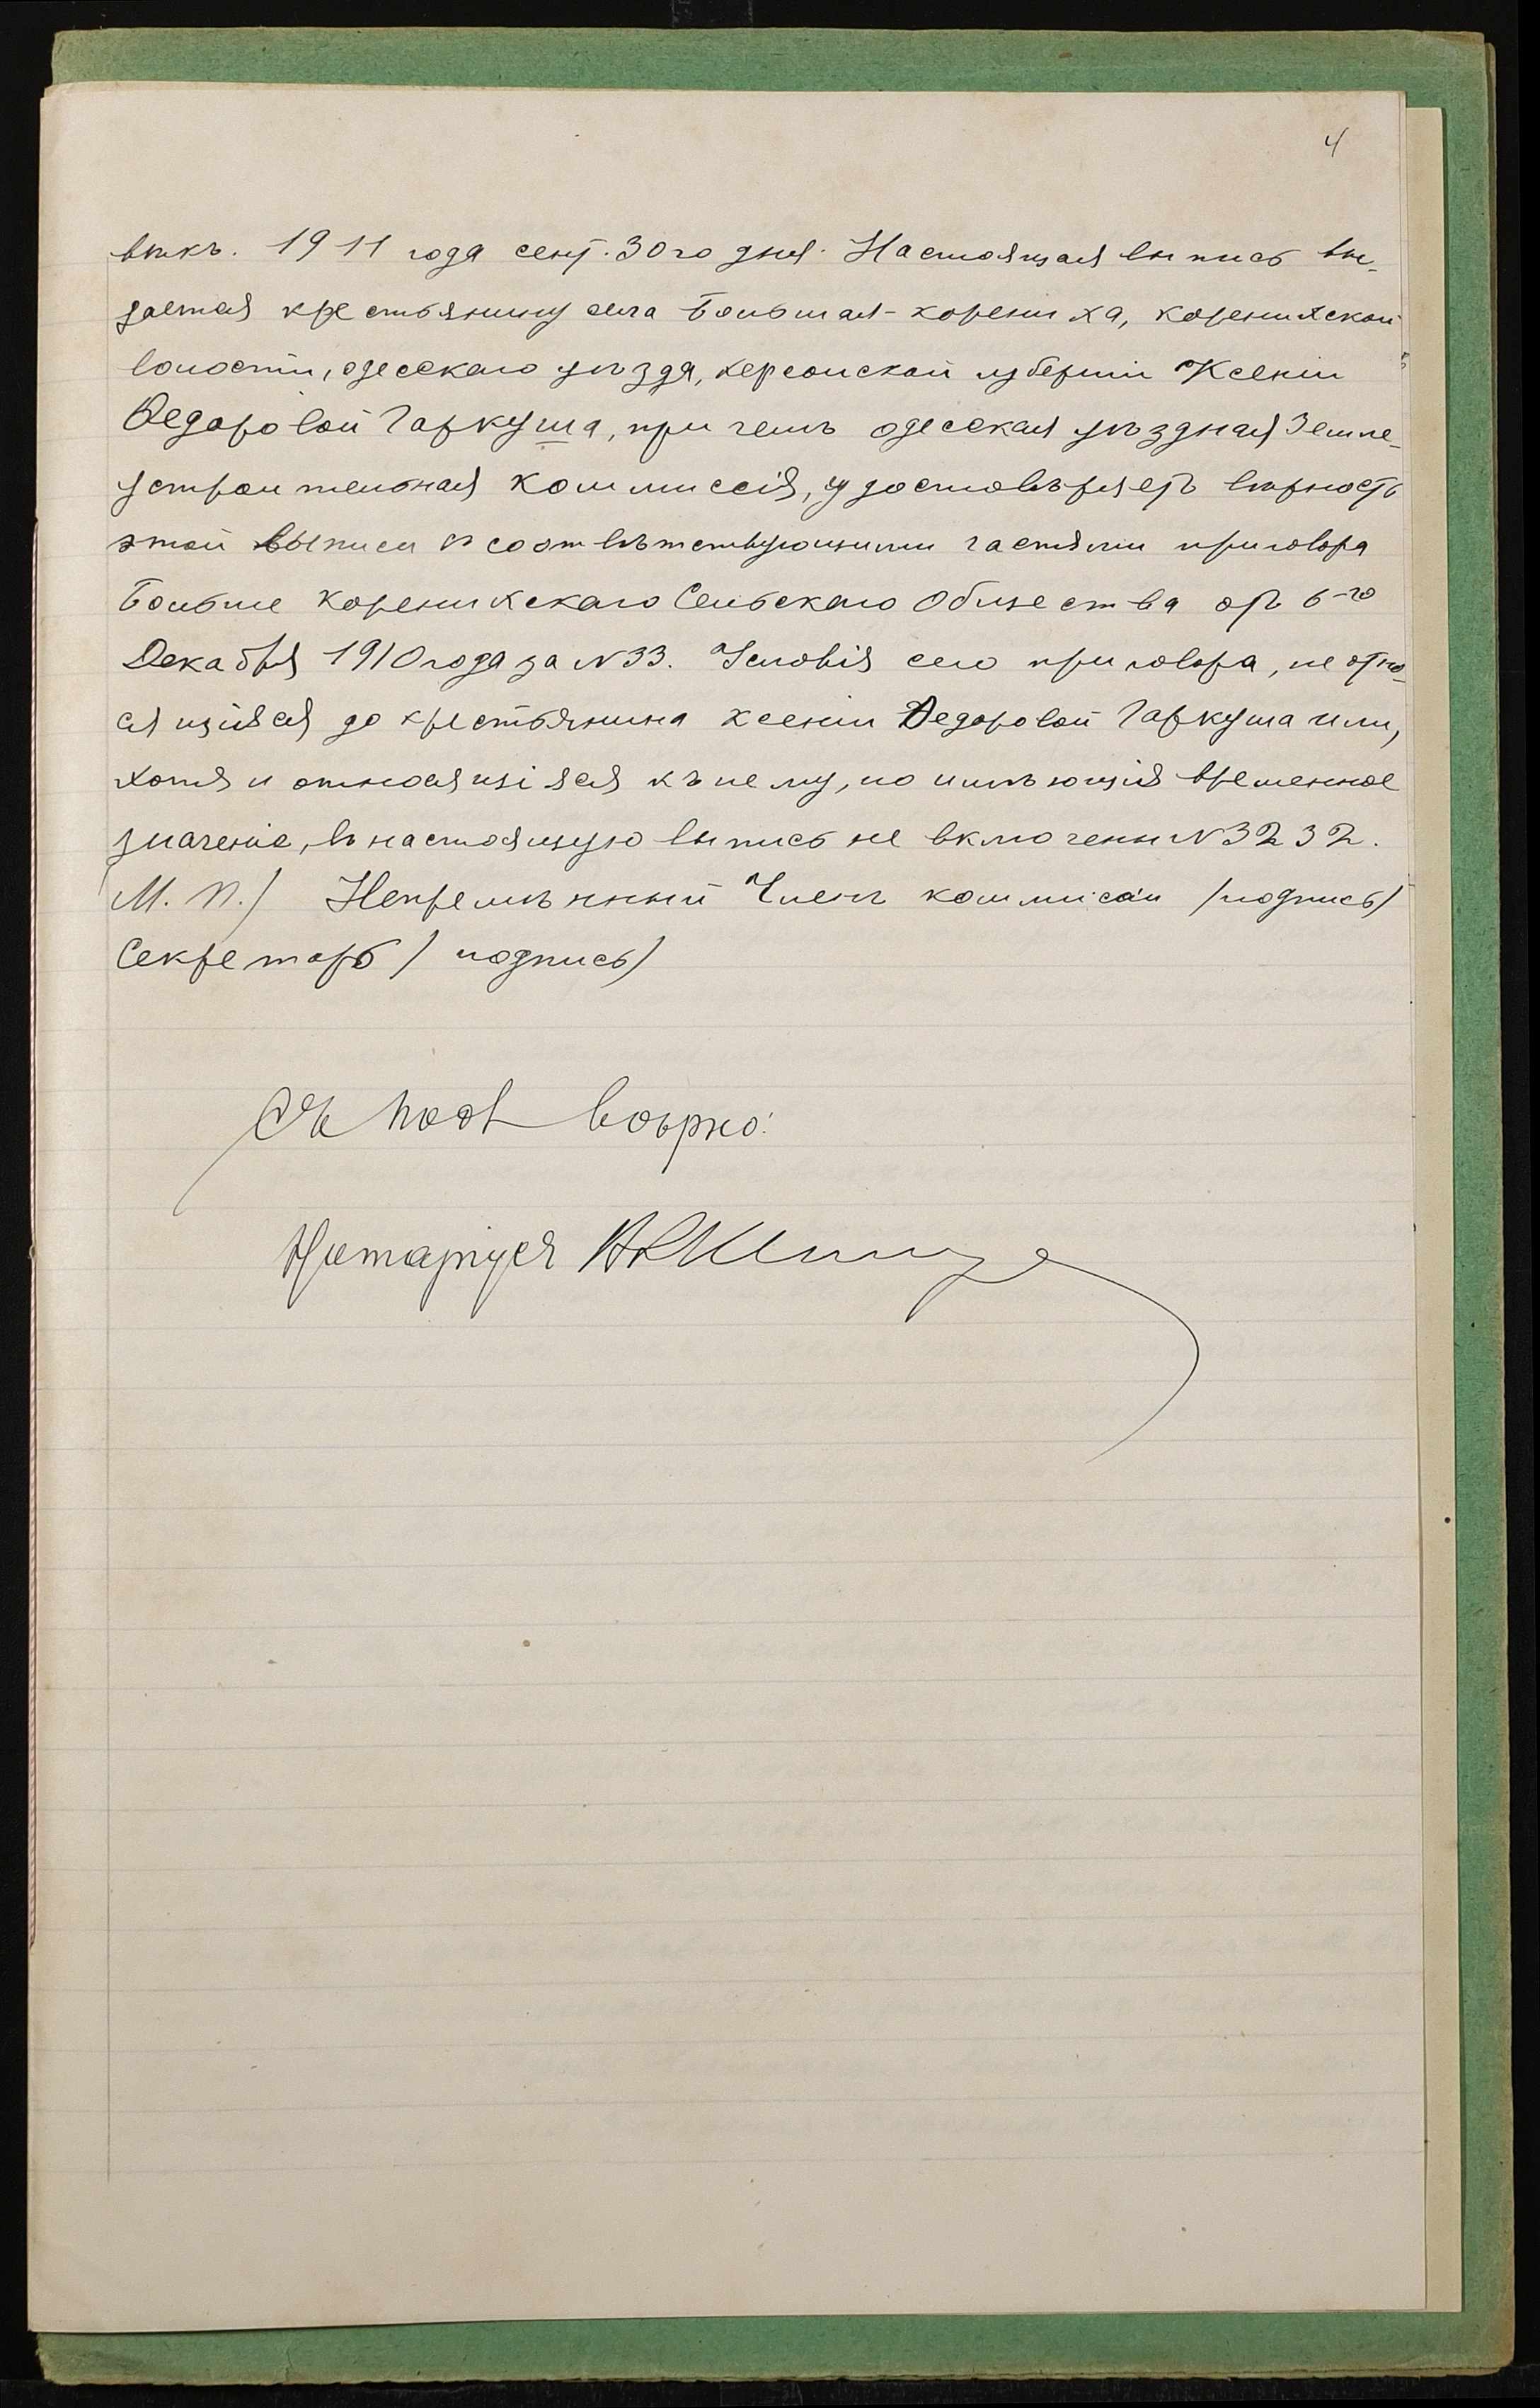 4
вѣкъ. 1911 года сент. 30го дня. Настоящая выпись вы-
дается крестьянину села Большая-Корениха, Коренихской
волости, одесскаго уѣзда, херсонской губерніи Ксеніи
Ѳедоровой Гаркуша, при чемъ одесская уѣздная Земле-
устроительная Коммиссія, удостовѣряетъ вѣрность
этой выписи съ соотвѣтствующими частями приговора
Больше Коренихскаго Сельскаго Общества отъ 6-го
Декабря 1910 года за N 33. Условія сего приговора, не отно-
сящіяся до крестьянина Ксеніи Ѳедоровой Гаркуша или,
хотя и относящіяся къ нему, но имѣющія временное
значеніе, въ настоящую выпись не включены N 3232.
М. П./ Непремѣнный Членъ коммисіи /подпись/
Секретарь /подпись/
вѣрно:
Нотаріусъ